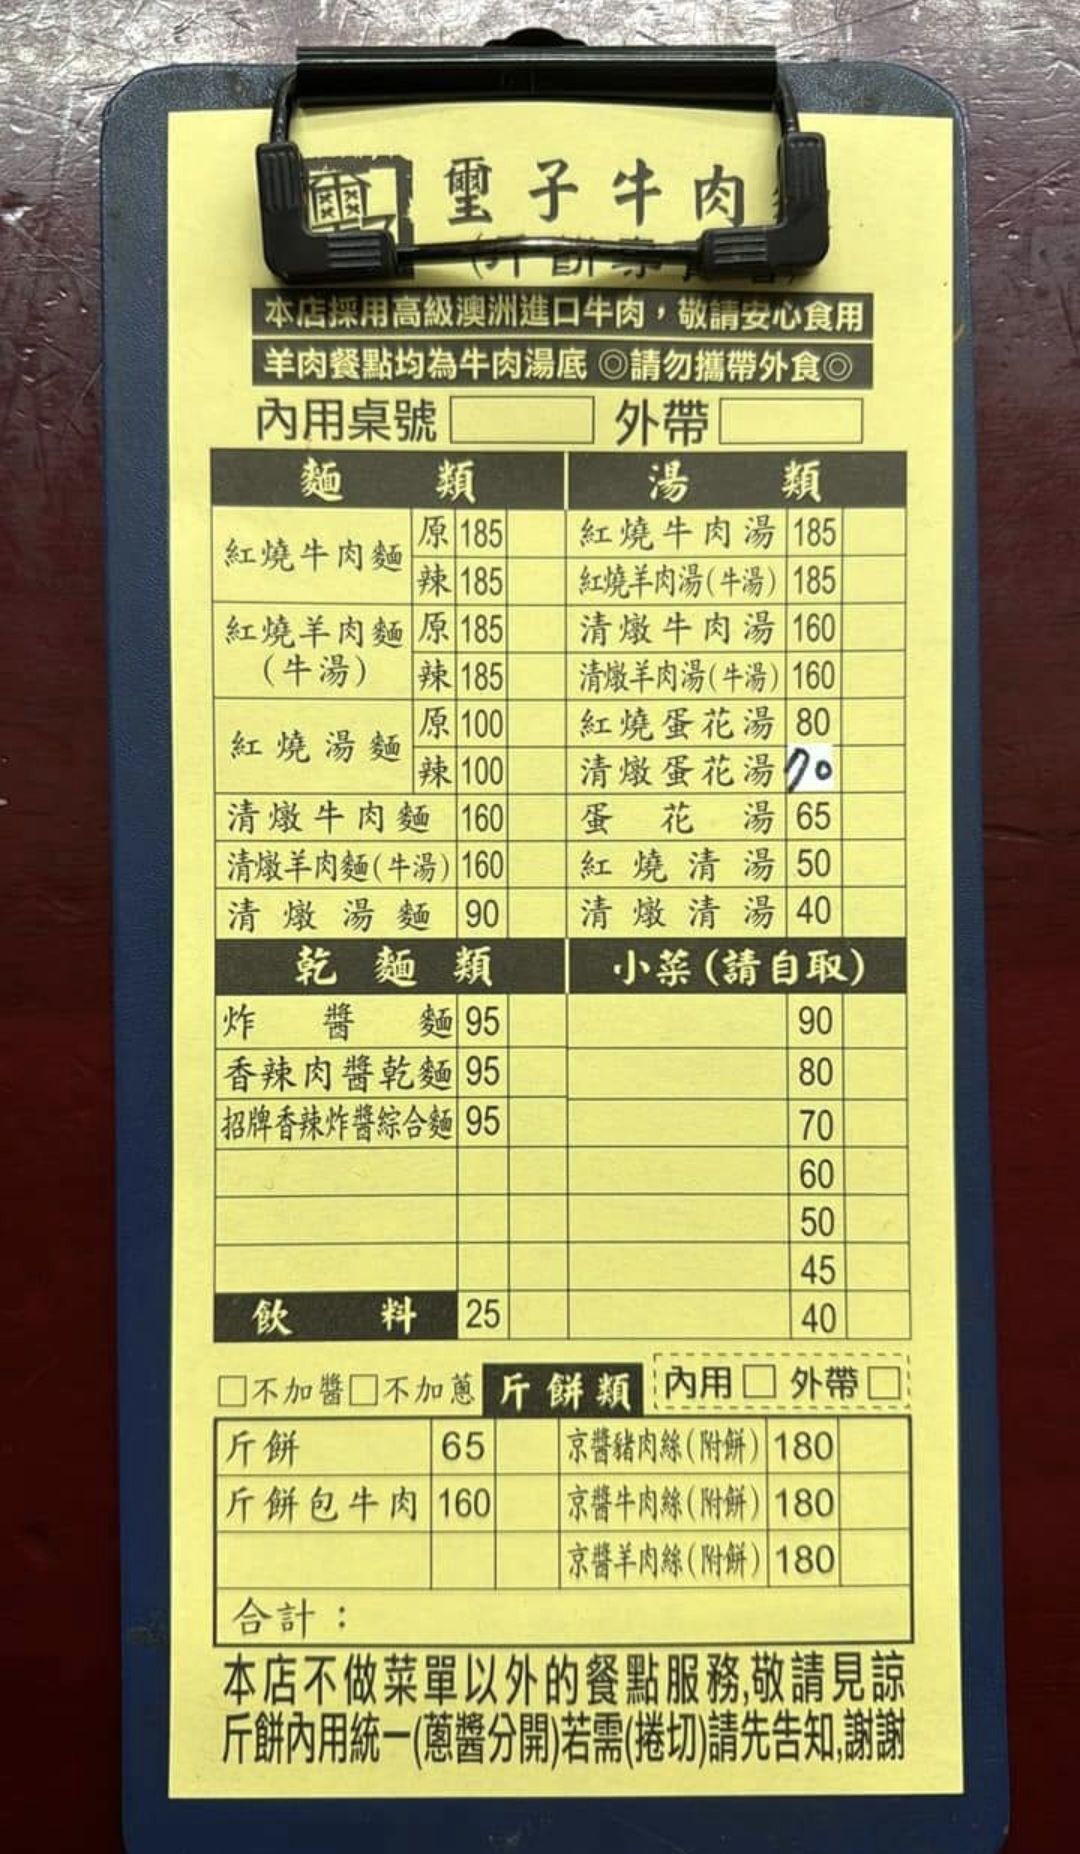 璽子牛肉
本店採用高級澳洲進口牛肉，敬請安心食用
羊肉餐點均為牛肉湯底 ◎請勿攜帶外食◎
內用桌號 外帶
麵類 湯類
紅燒牛肉麵 原 185 紅燒牛肉湯 185
辣 185 紅燒羊肉湯(牛湯) 185
紅燒羊肉麵(牛湯) 原 185 清燉牛肉湯 160
辣 185 清燉羊肉湯(牛湯) 160
紅燒湯麵 原 100 紅燒蛋花湯 80
辣 100 清燉蛋花湯 70
清燉牛肉麵 160 蛋花湯 65
清燉羊肉麵(牛湯) 160 紅燒清湯 50
清燉湯麵 90 清燉清湯 40
乾麵類 小菜(請自取)
炸醬麵 95 90
香辣肉醬乾麵 95 80
招牌香辣炸醬綜合麵 95 70
60
50
45
飲料 25 40
□不加醬□不加蔥 斤餅類 內用□ 外帶□
斤餅 65 京醬豬肉絲(附餅) 180
斤餅包牛肉 160 京醬牛肉絲(附餅) 180
京醬羊肉絲(附餅) 180
合計：
本店不做菜單以外的餐點服務,敬請見諒
斤餅內用統一(蔥醬分開)若需(捲切)請先告知,謝謝